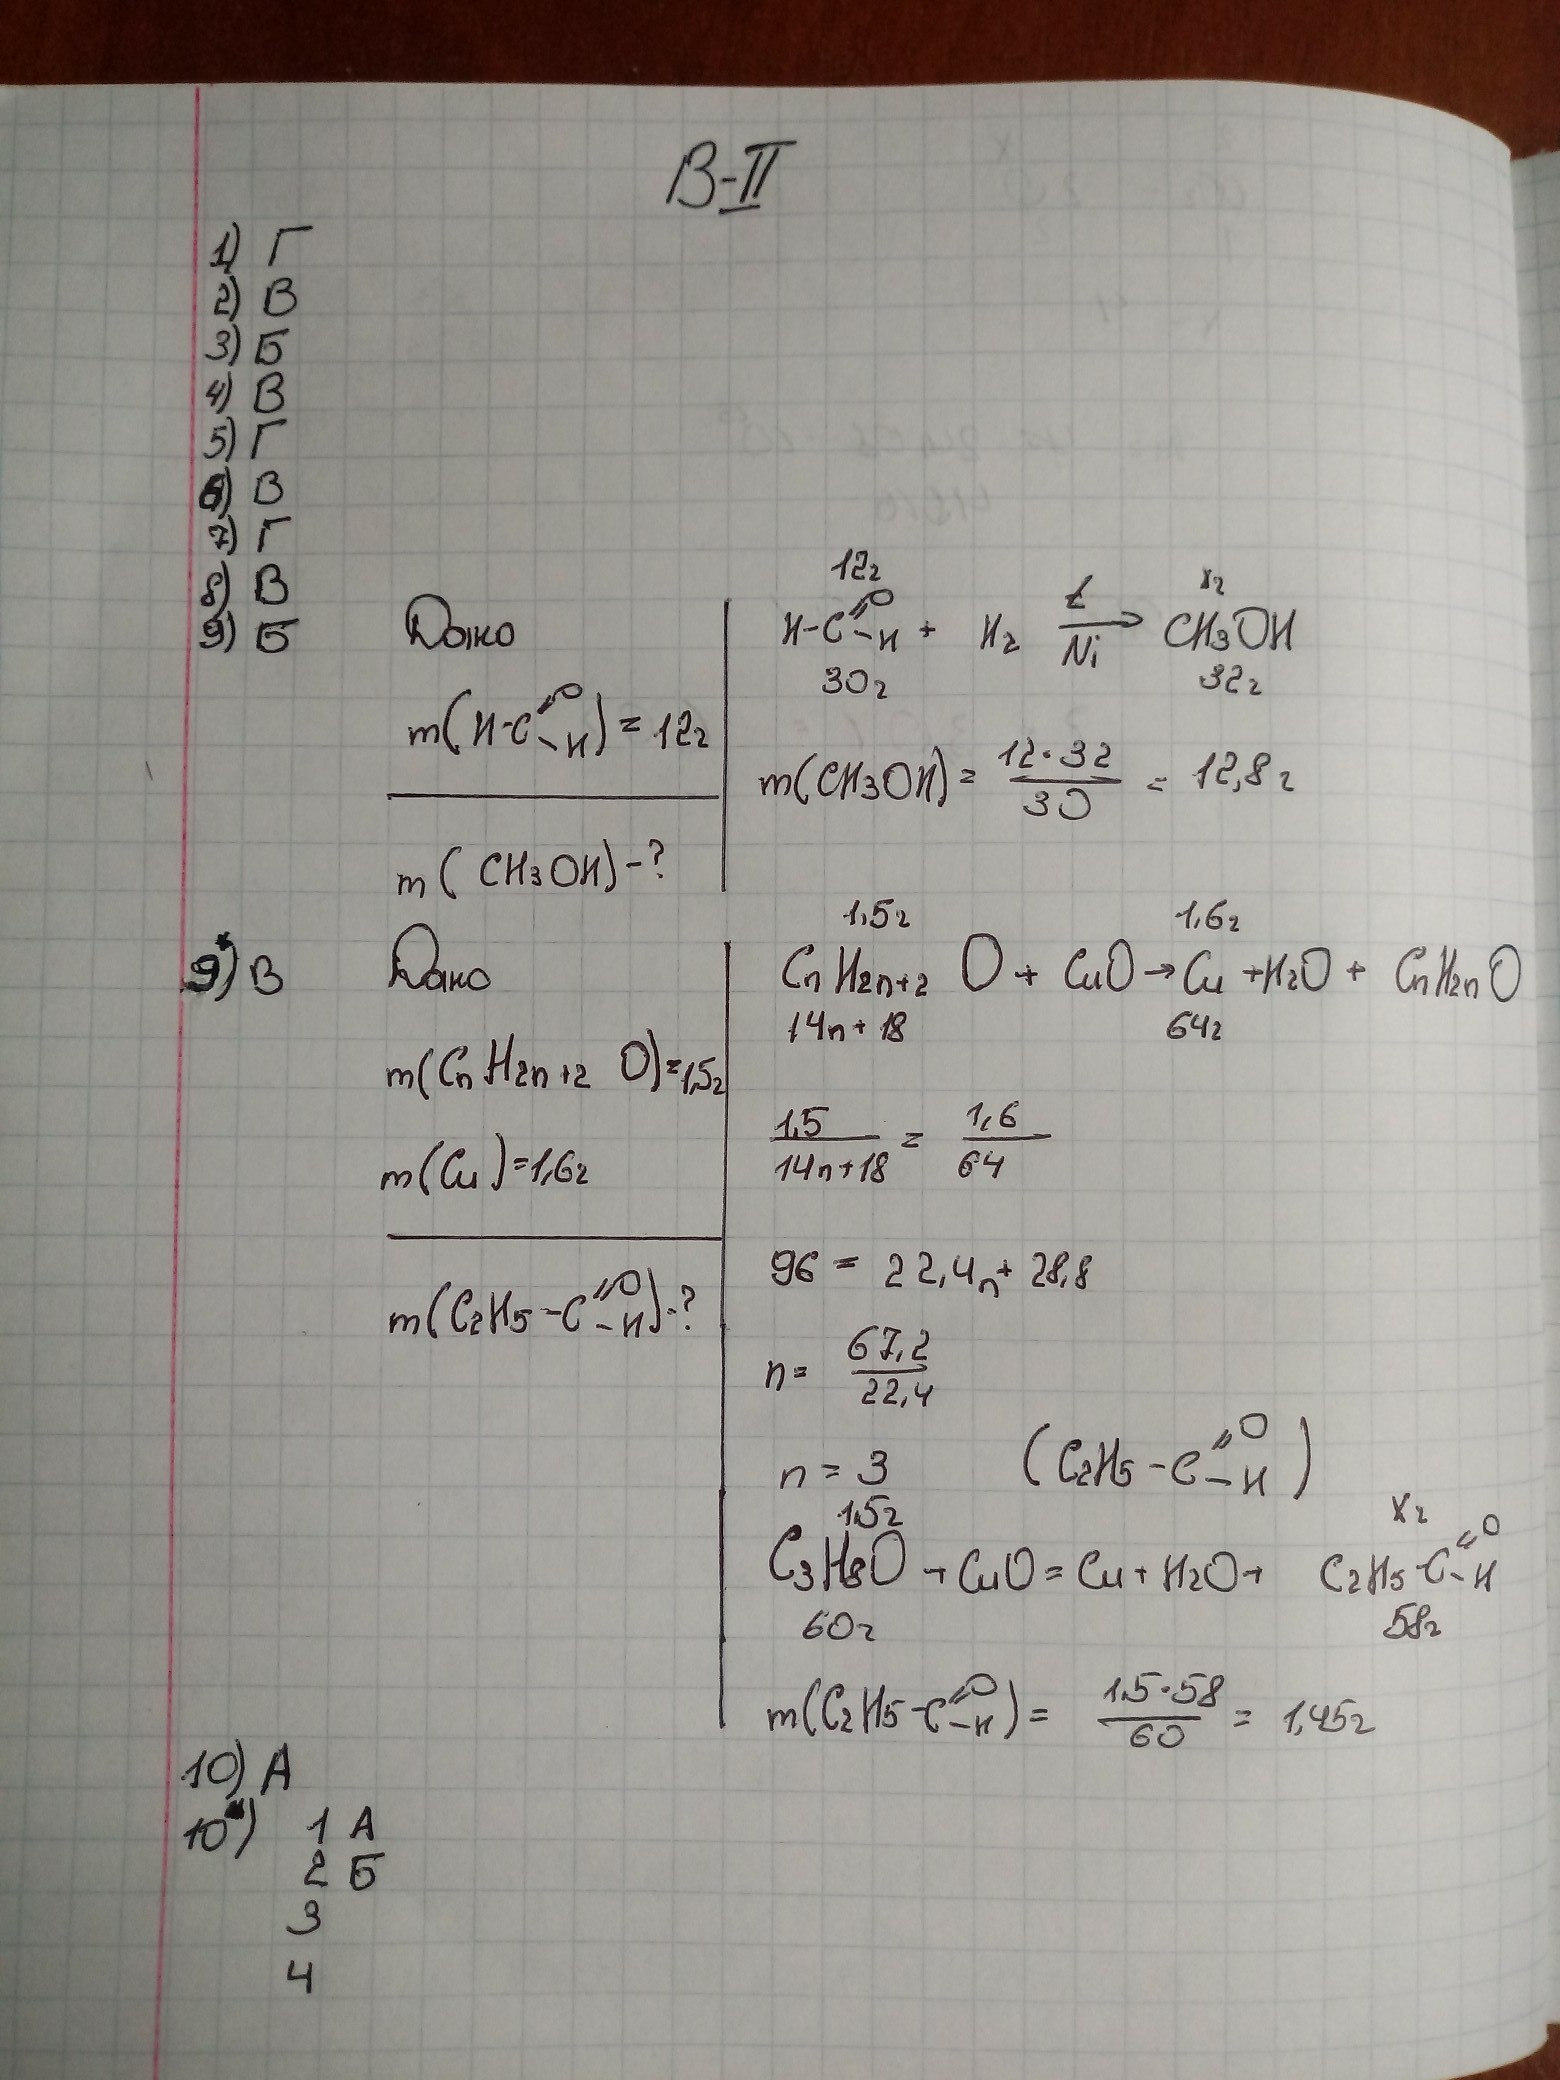 В-II
1) Г
2) В
3) Б
4) В
5) Г
6) В
7) Г
8) В
9) Б
Дано
m(H-C=O-H) = 12г
m(CH3OH)-?
12г xг
H-C=O-H + H2 t→Ni CH3OH
30г 32г
m(CH3OH) = 12·32/30 = 12,8г
9*) В
Дано
m(CnH2n+2 O)=1,5г
m(Cu)=1,6г
m(C2H5-C=O-H)-?
1,5г 1,6г
CnH2n+2 O + CuO → Cu + H2O + CnH2nO
14n+18 64г
1,5/14n+18 = 1,6/64
96 = 22,4n + 28,8
n = 67,2/22,4
n = 3 (C2H5-C=O-H)
1,5г xг
C3H8O + CuO = Cu + H2O + C2H5-C=O-H
60г 58г
m(C2H5-C=O-H) = 1,5·58/60 = 1,45г
10) А
10*) 1 А
2 Б
3
4